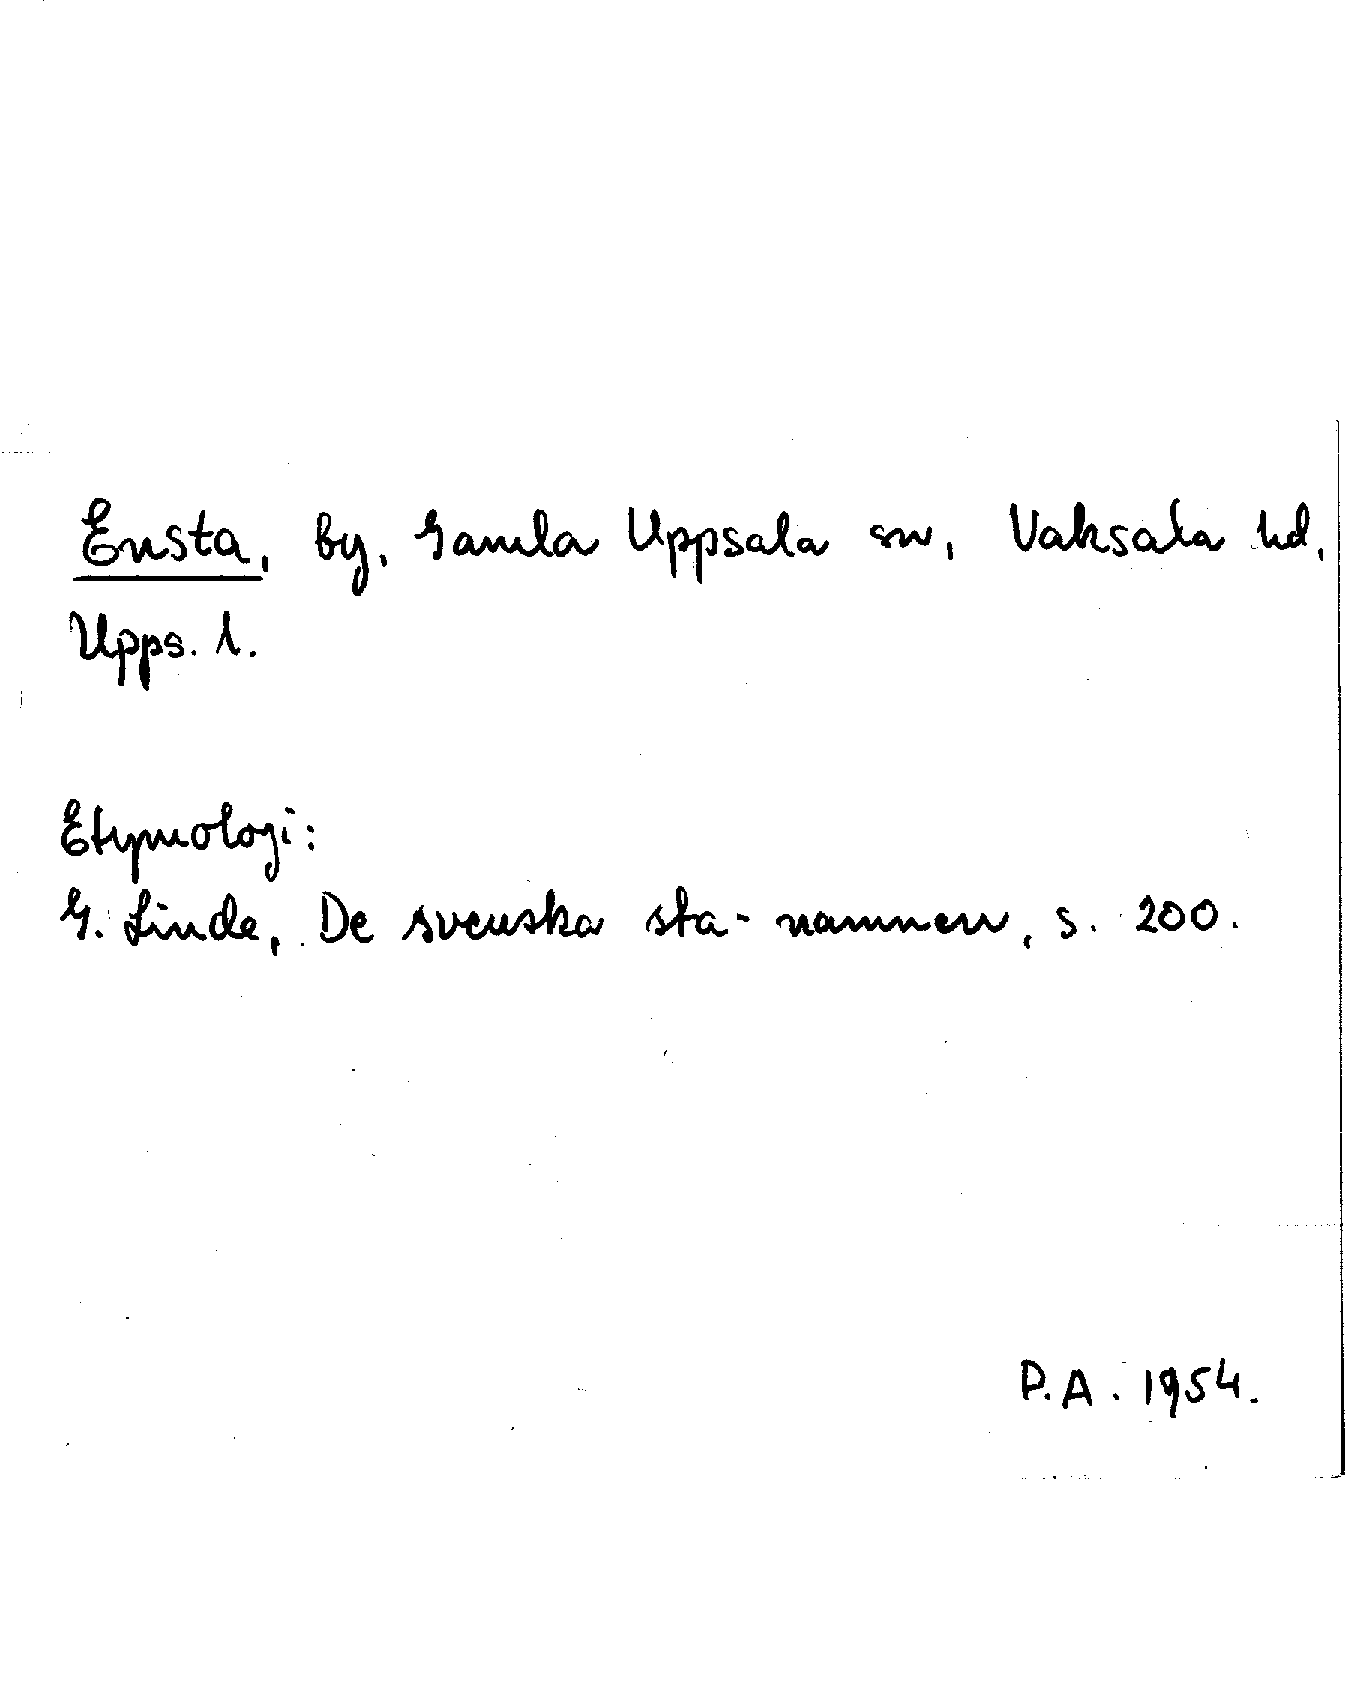 Ensta, by, Gamla Uppsala sn, Vaksala hd,
Upps. l.
Etymologi:
G. Linde, De svenska sta-namnen, s. 200.
P.A. 1954.